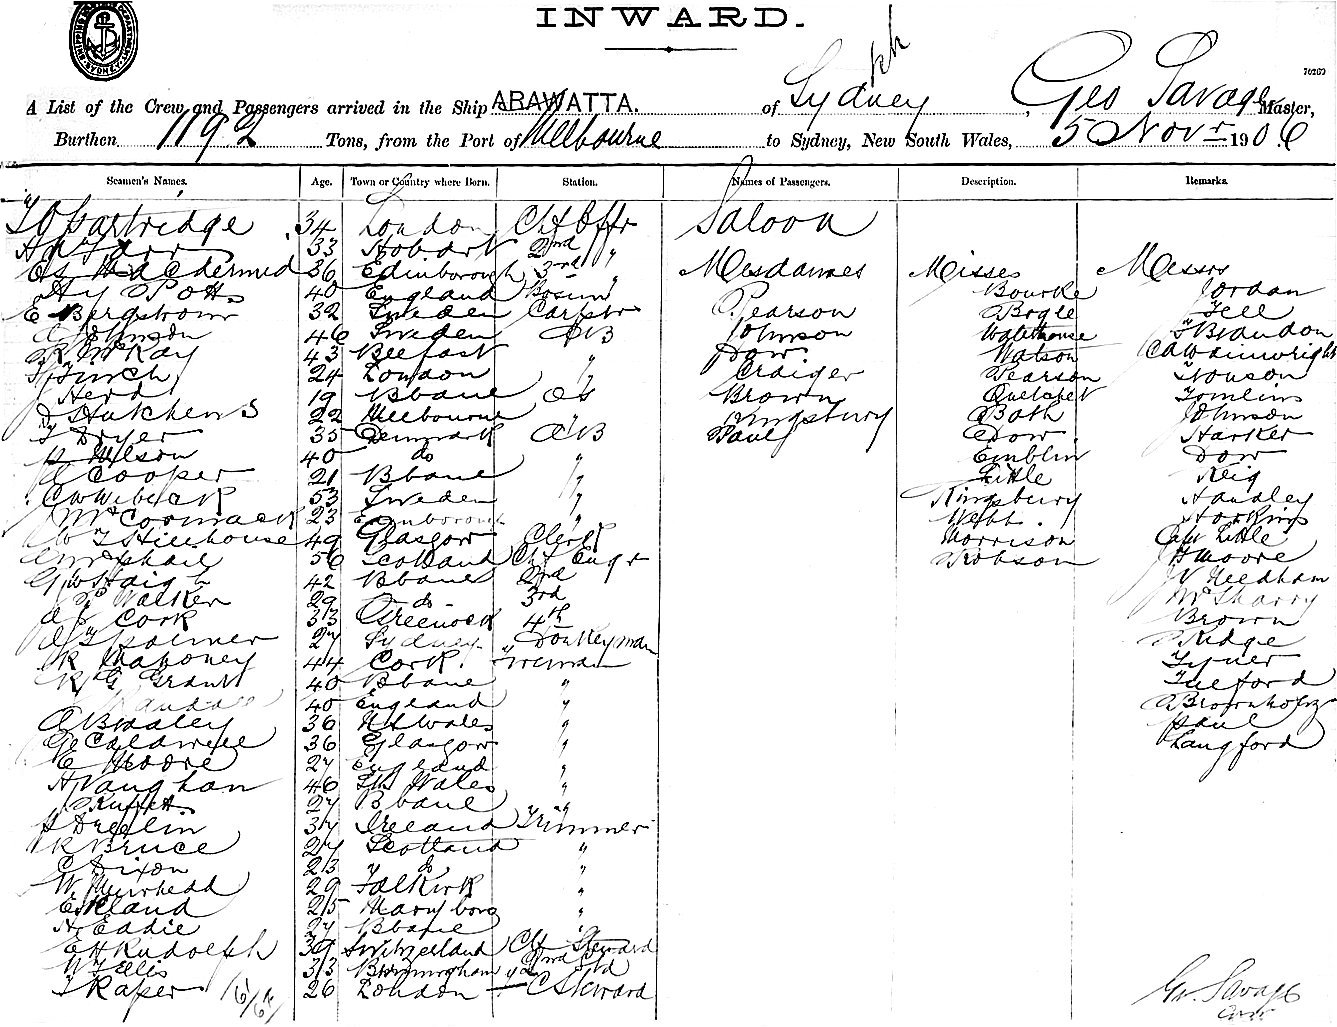 SHIPPING MASTER'S DEPARTMENT SYDNEY
INWARD.
70269
A List of the Crew and Passengers arrived in the Ship ARAWATTA. of Sydney, Geo Savage Master,
Burthen 1192 Tons, from the Port of Melbourne to Sydney, New South Wales, 5 Novr 1906
Seamen's Names. Age. Town or Country where Born. Station. Names of Passengers. Description. Remarks.
Partridge 34 London Chf Offr Saloon
33 Hobart 2nd "
MacDermid 36 Edinborough 3rd " Mesdames Misses Messrs
Hy Potts 40 England Bosun Bourke Jordan
E Bergstrom 32 Sweden Carptr Pearson Bogle Fell
Johnson 46 Sweden AB Johnson Waterhouse F Brandon
R McKay 43 Belfast " Dow. Watson CA Wainwright
Finch 24 London " Craiger Pearson
Herd 19 Bbane OS Brown Quetchet Tomlins
J Hutchens 22 Melbourne " Kingsbury Bath Johnson
T Dryer 35 Denmark AB Paul Dow. Harker
Nelson 40 do " Emblin Dow
Cooper 21 Bbane " Little Reig
53 Sweden " Kingsbury Handley
McCormack 23 Edinborough " Webb. Hoskins
W T Stillhouse 49 Glasgow Clerk Morrison Little
McPhail 56 Scotland Chf Engr Robson Moore
GW Haigh 42 Bbane 2nd Needham
Walker 29 do 3rd McSharry
Cork 33 Greenock 4th Brown
Palmer 27 Sydney " Donkeyman Ridge
R Mahoney 44 Cork. Fireman Tyner
R G Grant 40 Bbane " Telford
Randall 40 England "
A Bradley 36 N S Wales " Paul
Ge Caldwell 36 Glasgow " Langford
E Moore 27 England "
H Vaughan 46 N S Wales "
27 Bbane "
J Dreelin 37 Ireland Trimmer
R Bruce 27 Scotland "
C Dixon 23 do "
W. Muirhead 29 Falkirk "
E Kland 25 Maryboro "
H Eadie 27 Bbane "
E H Rudolph 39 Switzerland Chf Steward
W T Ellis 33 Birmingham 2nd Std
T Raper 26 London C Steward
Geo. Savage